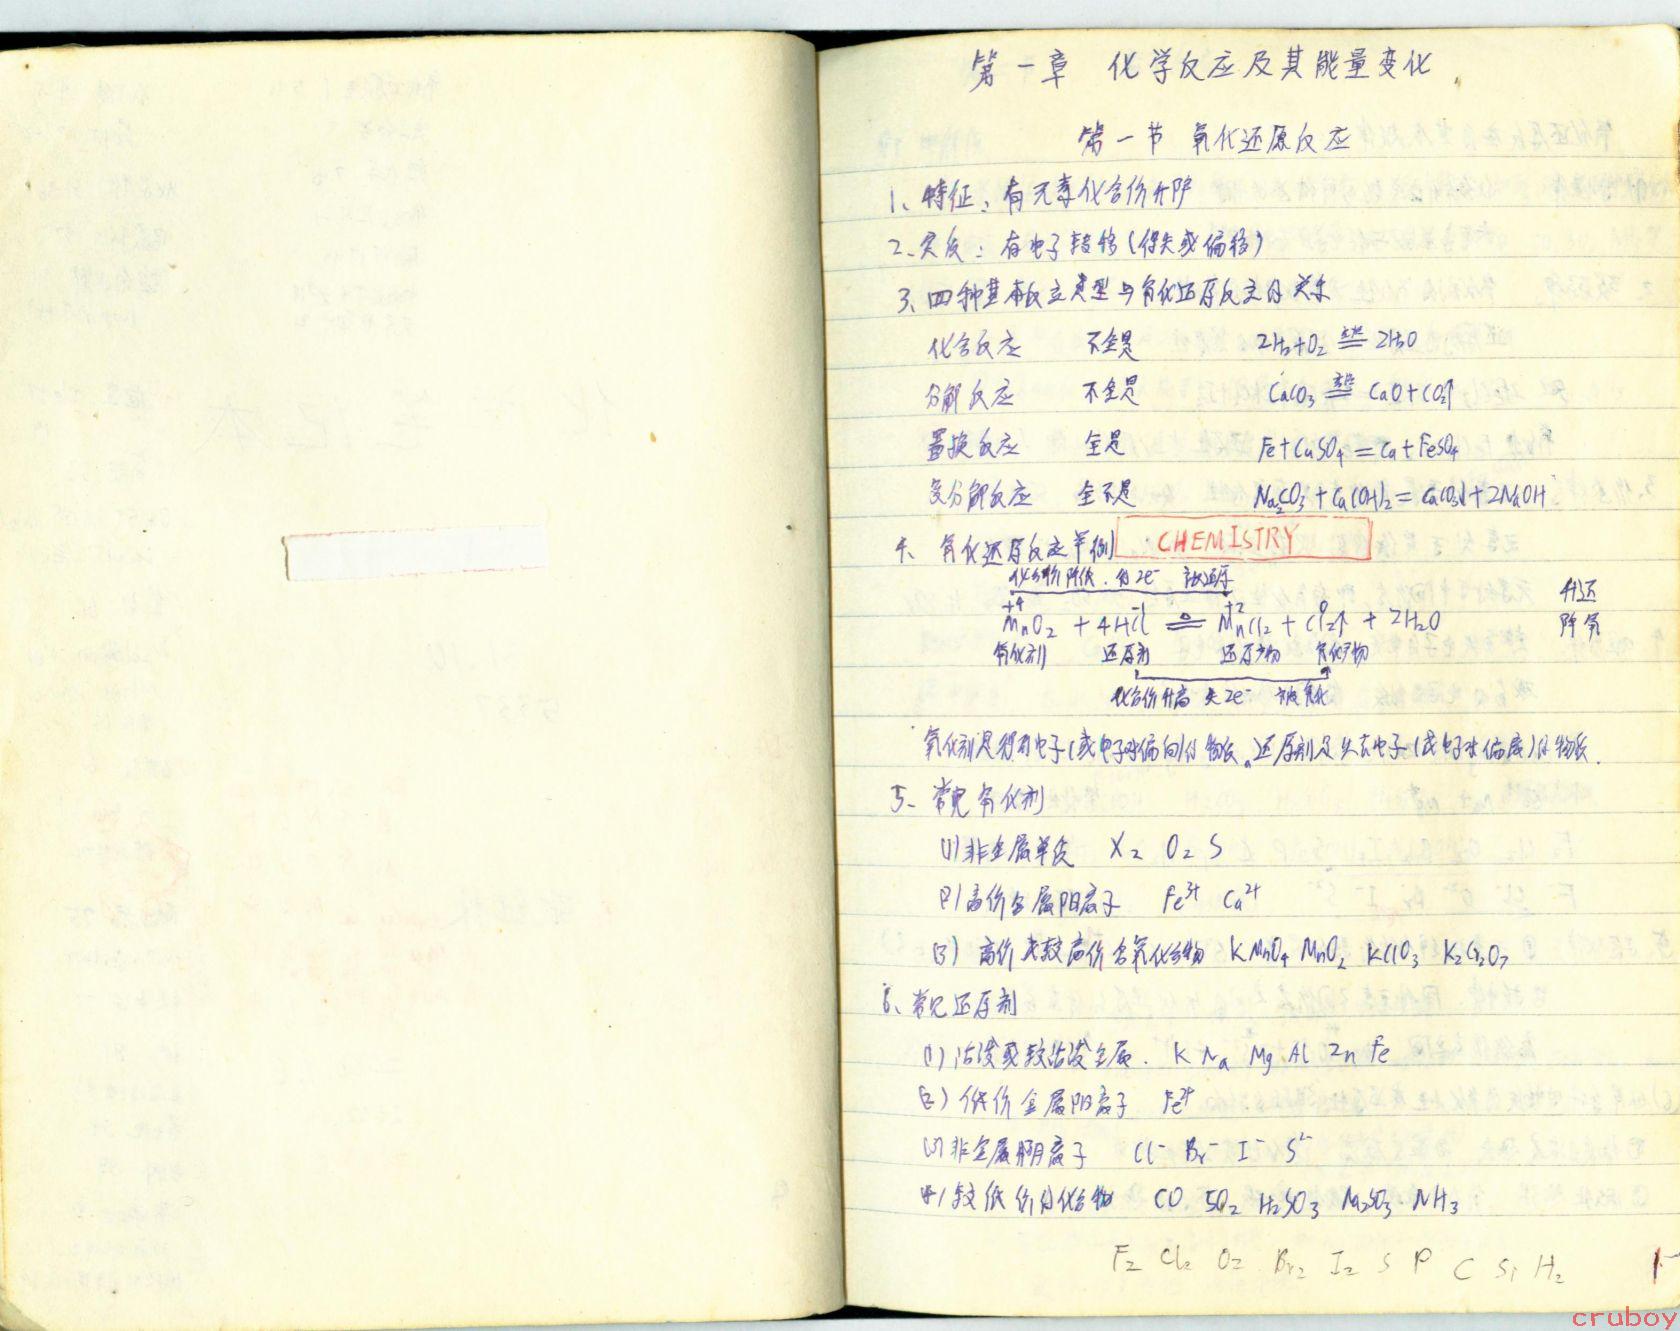 第一章 化学反应及其能量变化
第一节 氧化还原反应
1、特征：有元素化合价升降
2、实质：有电子转移(得失或偏移)
3、四种基本反应类型与氧化还原反应的关系
化合反应 不全是 2H2+O2 点燃 2H2O
分解反应 不全是 CaCO3 高温 CaO+CO2↑
置换反应 全是 Fe+CuSO4=Cu+FeSO4
复分解反应 全不是 Na2CO3+Ca(OH)2=CaCO3↓+2NaOH
4、氧化还原反应举例 CHEMISTRY
化合价降低.得2e- 被还原
升还
+4 -1 +2 0
MnO2 + 4HCl ≜ MnCl2 + Cl2↑ + 2H2O
降氧
氧化剂 还原剂 还原产物 氧化产物
化合价升高 失2e- 被氧化
氧化剂是得到电子(或电子对偏向)的物质。还原剂是失去电子(或电子对偏离)的物质.
5、常见氧化剂
(1)非金属单质 X2 O2 S
(2)高价金属阳离子 Fe3+ Cu2+
(3) 高价或较高价含氧化合物 KMnO4 MnO2 KClO3 K2Cr2O7
6、常见还原剂
(1)活泼或较活泼金属. K Na Mg Al Zn Fe
(2)低价金属阳离子 Fe2+
(3)非金属阴离子 Cl- Br- I- S2-
(4)较低价的化合物 CO SO2 H2SO3 Na2SO3 NH3
F2 Cl2 O2 Br2 I2 S P C Si H2
cruboy